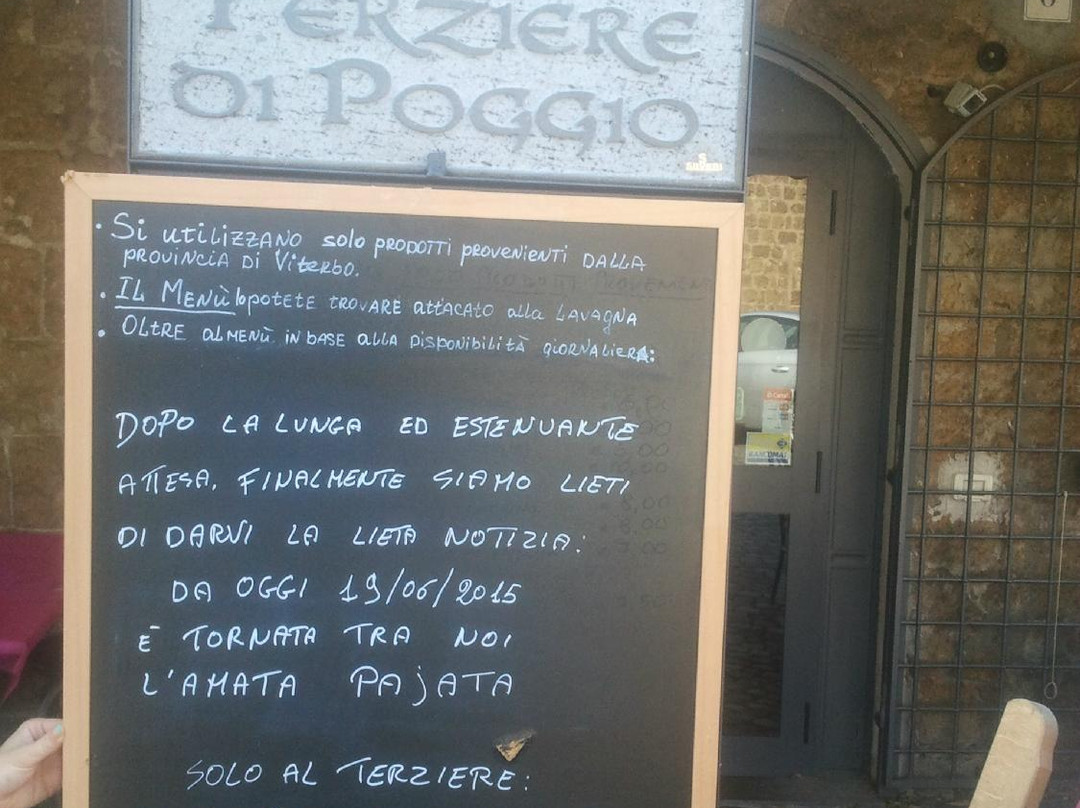 TERZIERE
DI POGGIO
• Si utilizzano solo prodotti provenienti dalla
provincia di Viterbo.
• IL MENÙ lo potete trovare attacato alla lavagna
• OLTRE al MENÙ in base alla disponibilità giornaliera:
DOPO LA LUNGA ED ESTENUANTE
ATTESA, FINALMENTE SIAMO LIETI
DI DARVI LA LIETA NOTIZIA:
DA OGGI 19/06/2015
È TORNATA TRA NOI
L'AMATA PAJATA
SOLO AL TERZIERE: